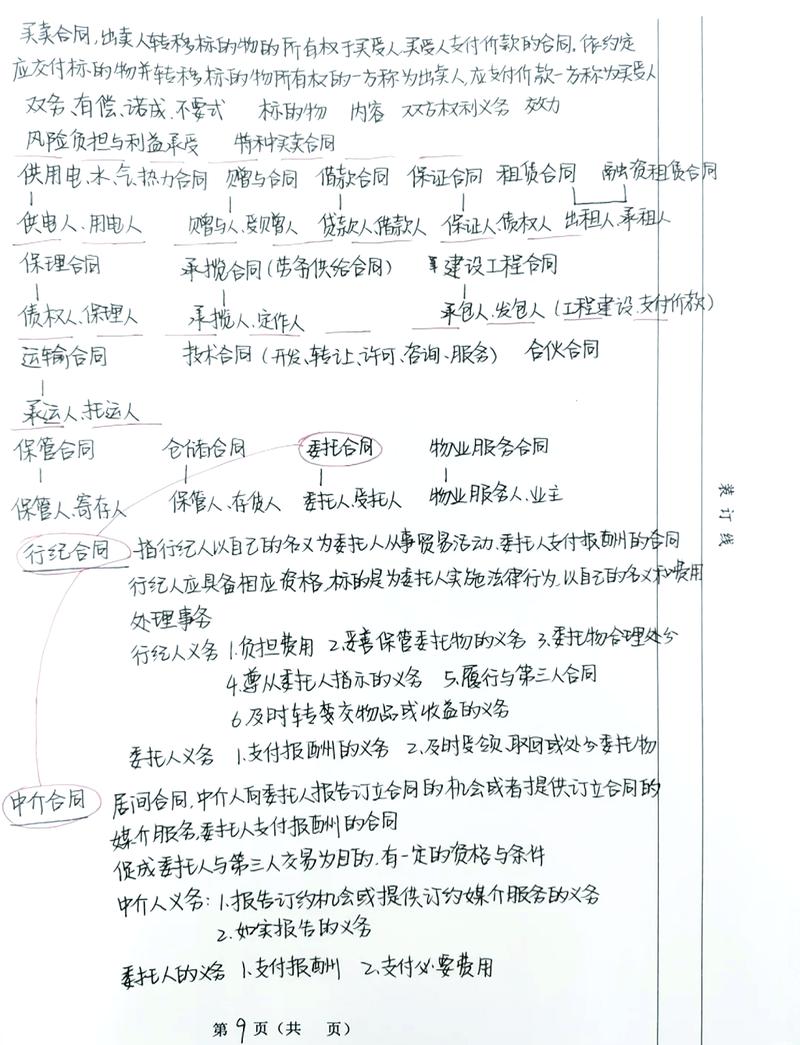 买卖合同,出卖人转移标的物的所有权于买受人,买受人支付价款的合同,依约定
应交付标的物并转移标的物所有权的一方称为出卖人,应支付价款一方称为买受人
双务、有偿、诺成、不要式 标的物 内容 双方权利义务 效力
风险负担与利益承受 特种买卖合同
供用电、水、气、热力合同 赠与合同 借款合同 保证合同 租赁合同 融资租赁合同
供电人、用电人 赠与人、受赠人 贷款人、借款人 保证人、债权人 出租人、承租人
保理合同 承揽合同(劳务供给合同) 建设工程合同
债权人、保理人 承揽人、定作人 承包人、发包人(工程建设、支付价款)
运输合同 技术合同(开发、转让、许可、咨询、服务) 合伙合同
承运人、托运人
保管合同 仓储合同 委托合同 物业服务合同
保管人、寄存人 保管人、存货人 委托人、受托人 物业服务人、业主
行纪合同 指行纪人以自己的名义为委托人从事贸易活动,委托人支付报酬的合同
行纪人应具备相应资格,标的是为委托人实施法律行为,以自己的名义和费用
处理事务
行纪人义务 1.负担费用 2.妥善保管委托物的义务 3.委托物合理处分
4.遵从委托人指示的义务 5.履行与第三人合同
6.及时转交物品或收益的义务
委托人义务 1.支付报酬的义务 2.及时受领、取回或处分委托物
中介合同 居间合同,中介人向委托人报告订立合同的机会或者提供订立合同的
媒介服务,委托人支付报酬的合同
促成委托人与第三人交易为目的,有一定的资格与条件
中介人义务:1.报告订约机会或提供订约媒介服务的义务
2.如实报告的义务
委托人的义务 1.支付报酬 2.支付必要费用
第9页(共 页)
装订线